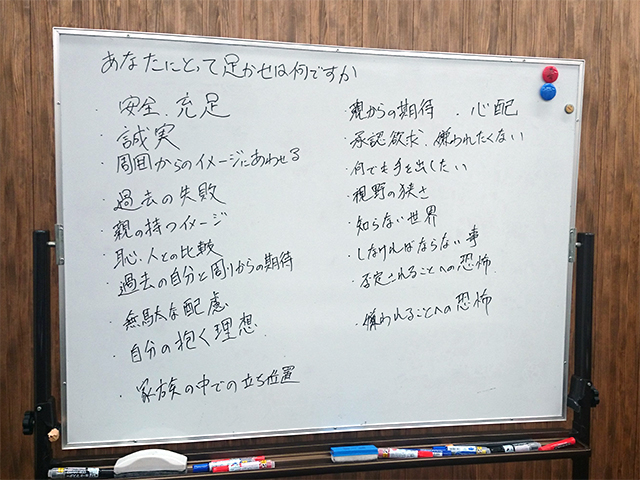 あなたにとって足かせは何ですか
・安全.充足
・誠実
・周囲からのイメージにあわせる
・過去の失敗
・親の持つイメージ
・恥.人との比較
・過去の自分と周りからの期待
・無駄な配慮
・自分の抱く理想
・家族の中での立ち位置
・親からの期待 . 心配
・承認欲求.嫌われたくない
・何でも手を出したい
・視野の狭さ
・知らない世界
・しなければならない事
・否定されることへの恐怖
・嫌われることへの恐怖